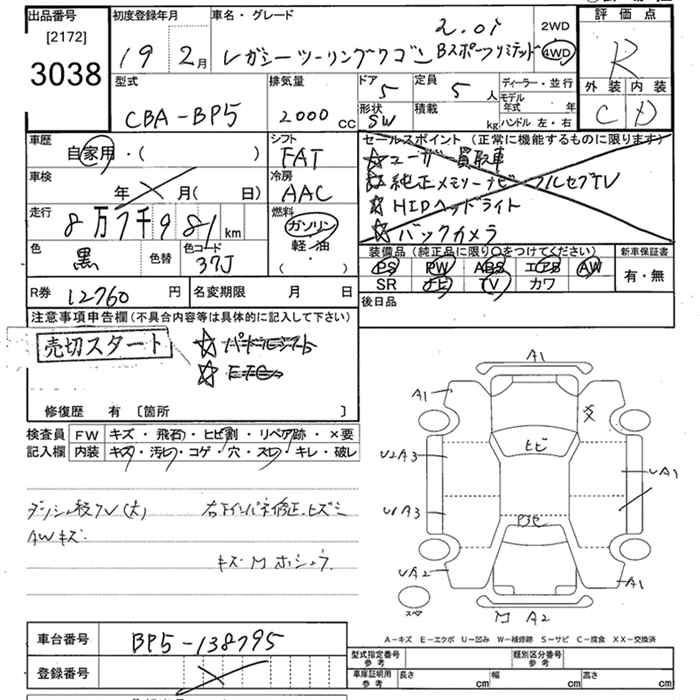 出品番号
[2172]
3038
初度登録年月
19 2月
車名・グレード
2.0i
レガシーツーリングワゴン Bスポーツリミテッド
2WD
4WD
評価点
R
外装 内装
C D
型式
CBA-BP5
排気量
2000 cc
ドア
5
形状
SW
定員
5 人
積載
kg
ディーラー・並行
モデル年式 年
ハンドル 左・右
車歴
自家用・( )
シフト
FAT
車検
年 月( 日)
冷房
AAC
走行
8万7千981 km
燃料
ガソリン
軽・油
・( )
色
黒
色替
色コード
37J
R券 12760 円
名変期限 月 日
セールスポイント (正常に機能するものに限ります)
☆ユーザー買取車
☆純正メモリーナビ フルセグTV
☆HIDヘッドライト
☆バックカメラ
装備品(純正品に限り○をつけてください)
PS PW ABS エアB AW
SR ナビ TV カワ
新車保証書
有・無
後日品
注意事項申告欄(不具合内容等は具体的に記入して下さい)
売切スタート
☆パドルシフト
☆ETC
修復歴 有 [箇所 ]
検査員記入欄
FW キズ・飛石・ヒビ割・リペア跡・×要
内装 キズ・汚れ・コゲ・穴・スレ・キレ・破レ
AWキズ
キズ M ホシュウ
A1
A1
ヒビ
UA3
UA3
UA2
UA1
A1
M A2
スペア
A-キズ E-エクボ U-凹み W-補修跡 S-サビ C-腐食 XX-交換済
車台番号
BP5-138795
登録番号
型式指定番号
参考
類別区分番号
参考
車庫証明用
参考
長さ cm
幅 cm
高さ cm